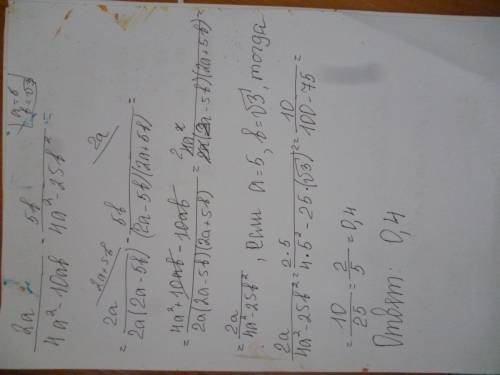 2a/(4a²-10ab) - 5b/(4a²-25b²) | a=5 b=√3
= 2a/(2a(2a-5b)) - 5b/((2a-5b)(2a+5b)) =
= (4a²+10ab-10ab)/(2a(2a-5b)(2a+5b)) = 4a²/(2a(2a-5b)(2a+5b)) =
= 2a/(4a²-25b²), если a=5, b=√3, тогда
2a/(4a²-25b²) = 2·5/(4·5²-25·(√3)²) = 10/(100-75) =
= 10/25 = 2/5 = 0,4
Ответ: 0,4